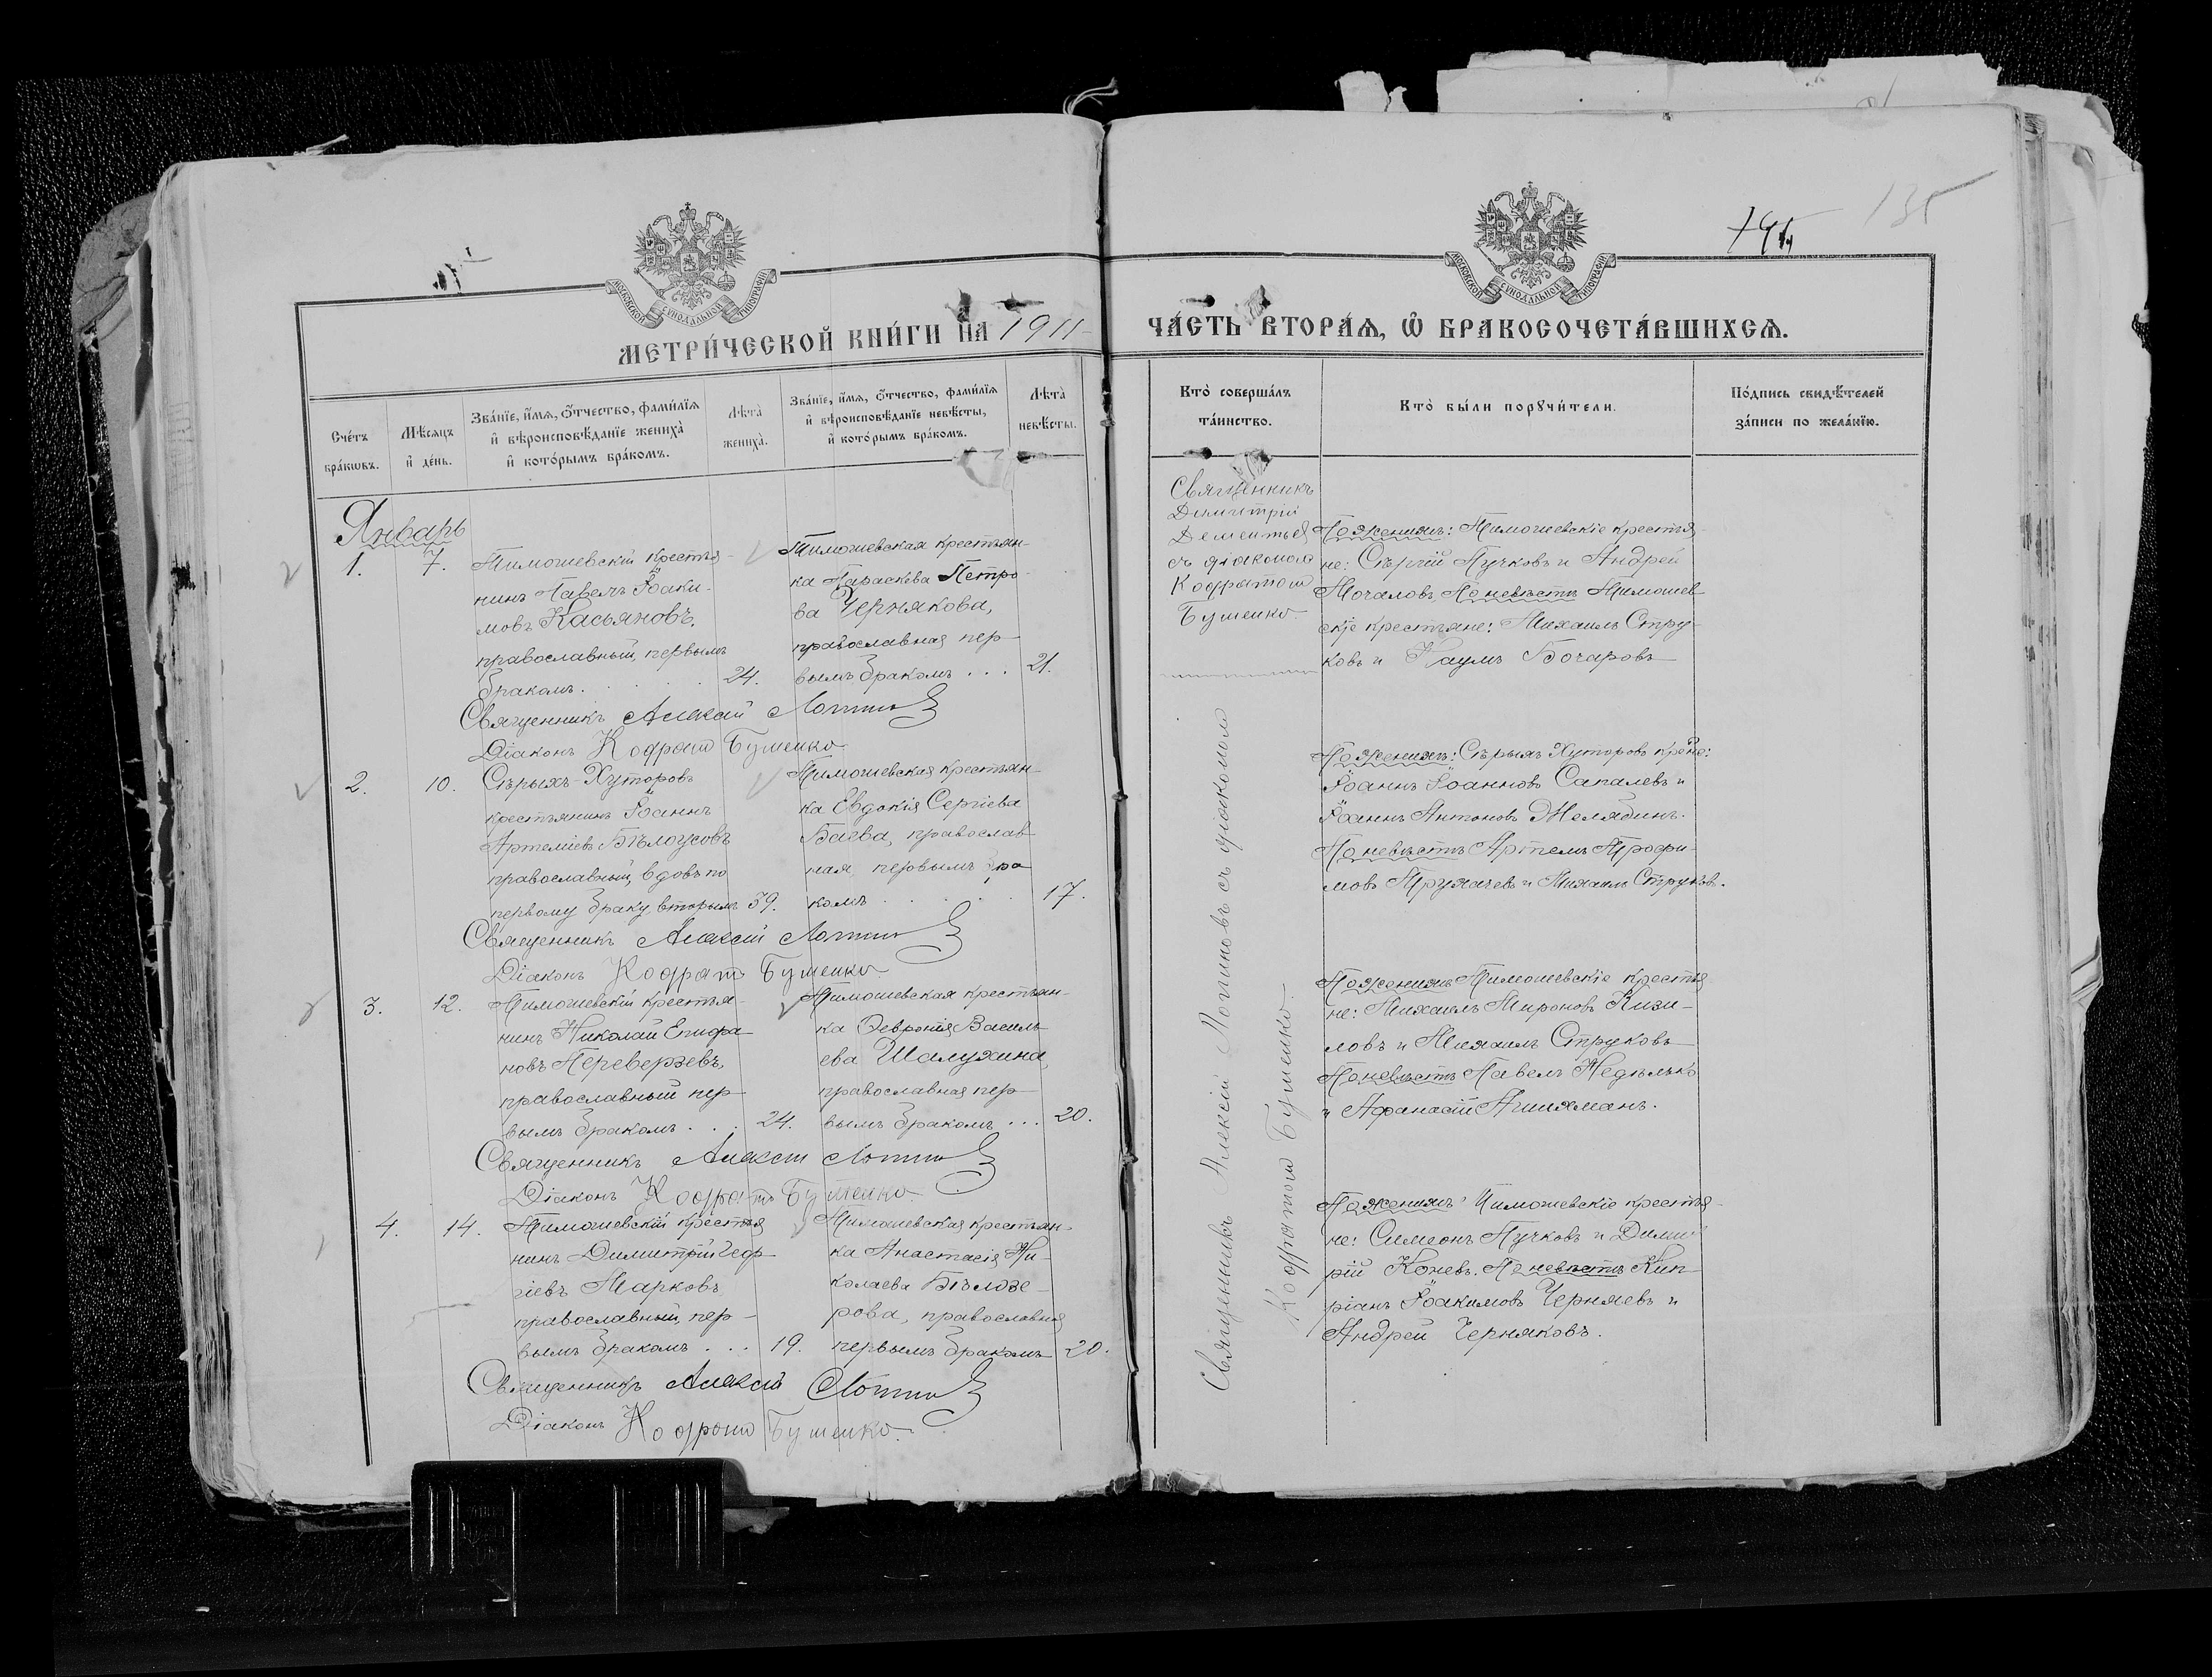 135
МОСКОВСКОЙ СѴНОДАЛЬНОЙ ТИПОГРАФІИ
МОСКОВСКОЙ СѴНОДАЛЬНОЙ ТИПОГРАФІИ
МЕТРИ́ЧЕСКОЙ КНИ́ГИ НА 1911
ЧА́СТЬ ВТОРА́Я, Ѿ БРАКОСОЧЕТА́ВШИХСѦ.
Сче́тъ бра́кѡвъ.
Мѣ́сяцъ и҆ де́нь.
Зва́нїе, и҆́мя, ѻ҆́тчество, фами́лїя и҆ вѣроисповѣ́данїе жениха̀ и҆ кото́рымъ бра́комъ.
Лѣта̀ жениха̀.
Зва́нїе, и҆́мя, ѻ҆́тчество, фами́лїя и҆ вѣроисповѣ́данїе невѣ́сты, и҆ кото́рымъ бра́комъ.
Лѣта̀ невѣ́сты.
Кто̀ соверша́лъ та́инство.
Кто̀ бы́ли порꙋчи́тели.
По́дпись свидѣ́телей за́писи по жела́нїю.
Январь
1. 7.
Тимошевскій крестья-
нинъ Павелъ Іоаки-
мовъ Касьяновъ,
православный, первымъ
бракомъ. . . . . 24.
Тимошевская крестьян-
ка Параскева Петро-
ва Чернякова,
православная пер-
вымъ бракомъ . . . 21.
Священникъ
Димитрій
Дементьев
съ діакономъ
Кодратом
Бутенко.
По женихѣ: Тимошевскіе крестья-
не: Сергій Пучковъ и Андрей
Мочаловъ, По невѣстѣ Тимошев-
скіе крестьяне: Михаилъ Стру-
ковъ и Наумъ Бочаровъ
Священникъ Алексій
Діаконъ Кодратъ Бутенко
2. 10.
Сѣрыхъ-Хуторовъ
крестьянинъ Іоаннъ
Артеміевъ Бѣлоусовъ
православный, вдовъ по
первому браку вторымъ 39.
Тимошевская крестьян-
ка Евдокія Сергіева
Баева, православ-
ная, первымъ бра-
комъ . . . . . 17.
По женихѣ: Сѣрыхъ Хуторовъ кр-не:
Іоаннъ Іоанновъ Сапалевъ и
Іоаннъ Антоновъ Желябинъ.
По невѣстѣ Артемъ Трофи-
мовъ и Михаилъ Струковъ.
Священникъ Алексій
Діаконъ Кодратъ Бутенко
3. 12.
Тимошевскій крестья-
нинъ Николай Епифа-
новъ Переверзевъ,
православный пер-
вымъ бракомъ . . . 24.
Тимошевская крестьян-
ка Февронія Василь-
ева Шалухина,
православная пер-
вымъ бракомъ . . . 20.
По женихѣ Тимошевскіе крестья-
не: Михаилъ Мироновъ Кизи-
ловъ и Михаилъ Струковъ
По невѣстѣ Павелъ Недѣлько
и Афанасій
Священникъ Алексій
Діаконъ Кодратъ Бутенко.
4. 14.
Тимошевскій крестья-
нинъ Димитрій Геор-
гіевъ Марковъ,
православный, пер-
вымъ бракомъ . . . 19.
Тимошевская крестьян-
ка Анастасія Ни-
колаева Бѣлозе-
рова, православная
первымъ бракомъ 20.
По женихѣ Тимошевскіе крестья-
не: Симеонъ Пучковъ и Димит-
рій Коневъ. По невѣстѣ Кип-
ріанъ Іоакимовъ Черняевъ и
Андрей Черняковъ.
Священникъ Алексій
Діаконъ Кодратъ Бутенко.
Священникъ Алексій съ діакономъ
Кодратом Бутенко.